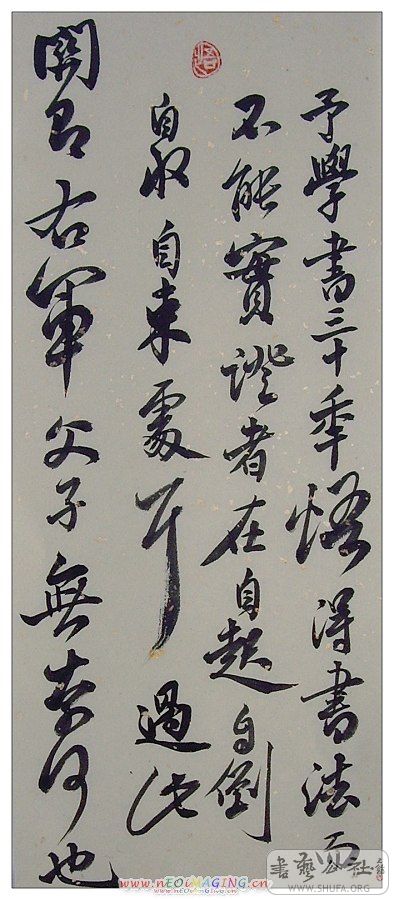 予學書三十年悟得書法而
不能實證者在自起自倒
自收自束處耳過此
關即右軍父子無奈何也
書藝公社
WWW.SHUFA.ORG
www.nEOiMAGiNG.cn